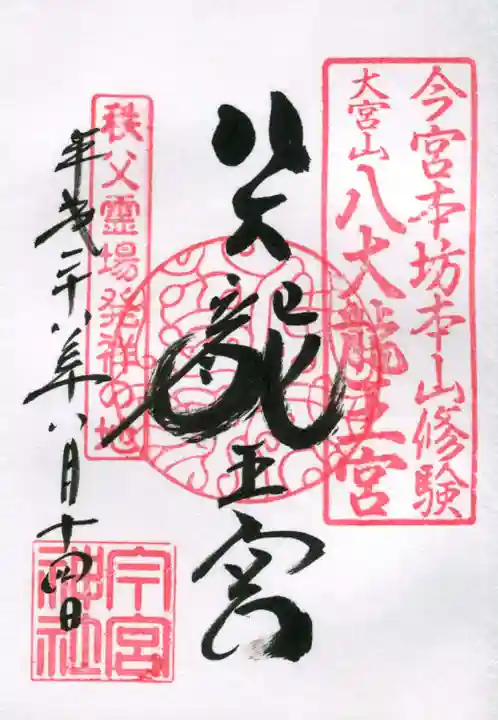 今宮本坊本山修験
大宮山
八大龍王宮
八大龍王宮
秩父霊場発祥の地
平成二十八年八月十四日
今宮
神社